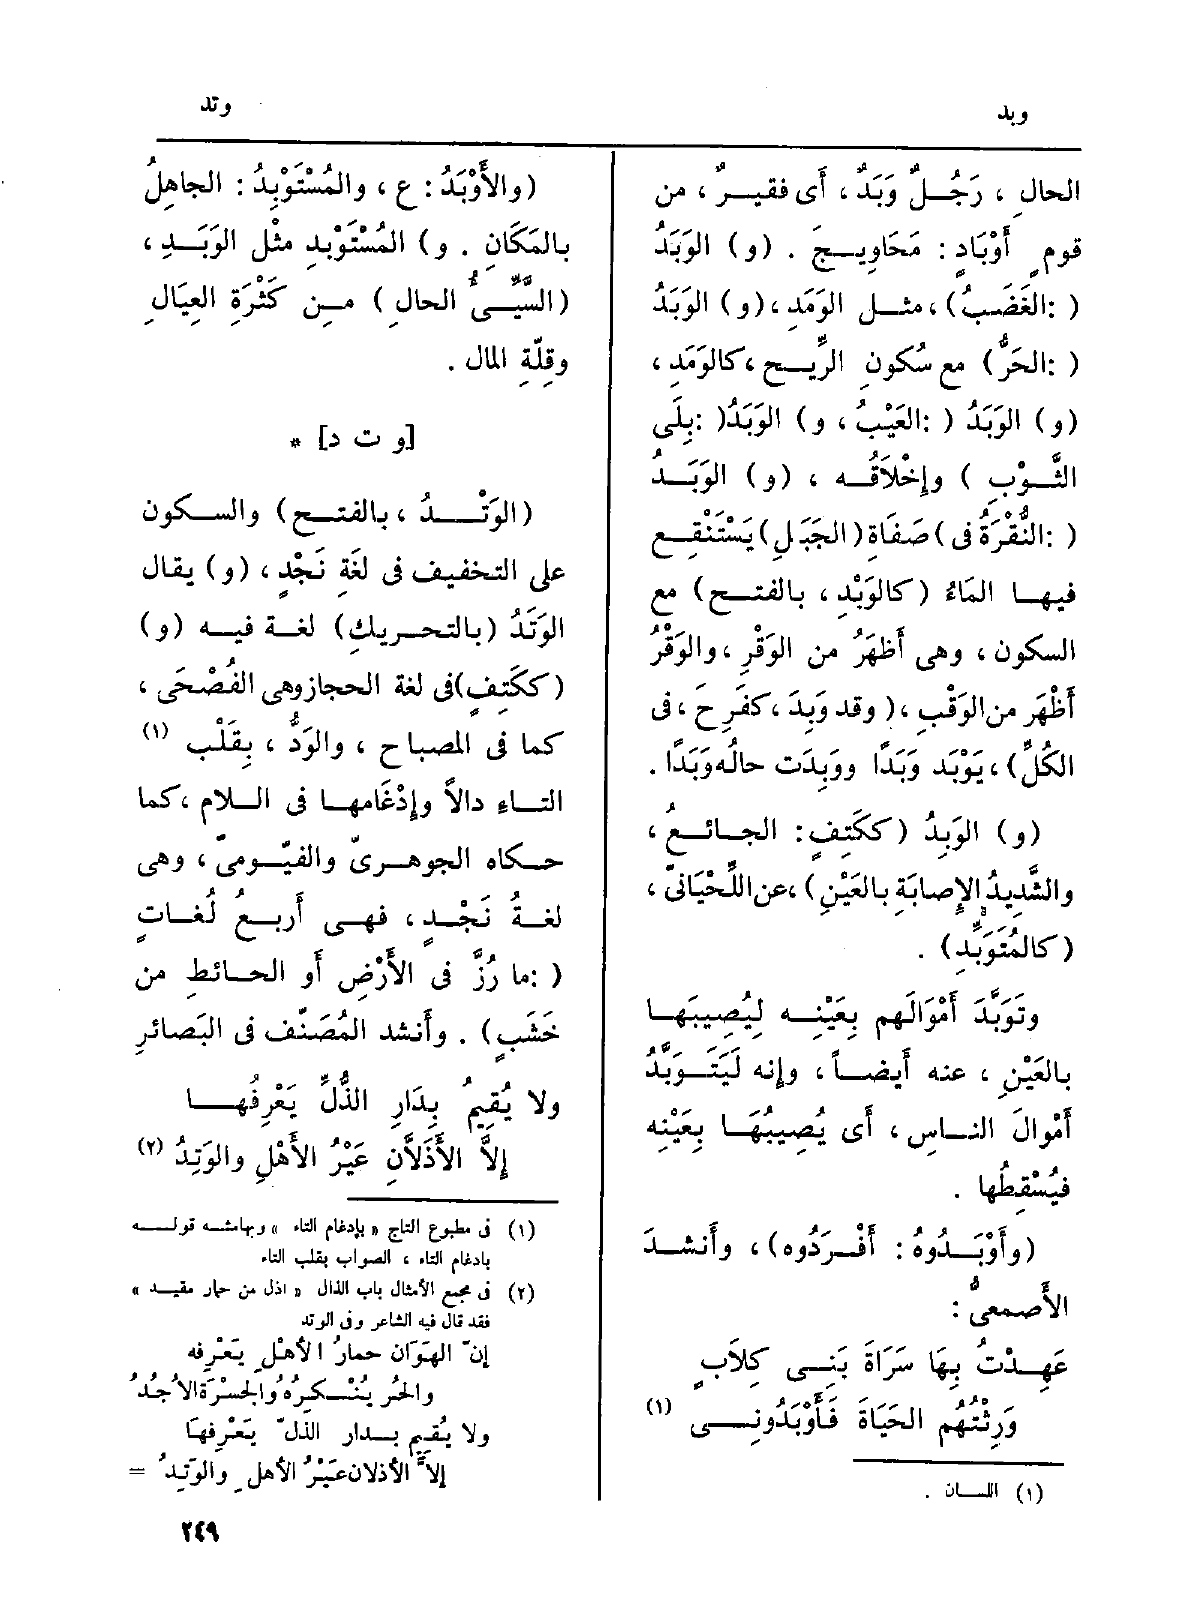 وبد
وتد
الحال ، رَجُلٌ وَبَدٌ ، أَى فقيرٌ ، من
قومٍ أَوْبَادٍ : مَحَاوِيجَ . (و) الوَبَدُ
( :الغَضَبُ) ، مثل الوَمَدِ ، (و) الوَبَدُ
( :الحَرُّ) مع سُكونِ الرِّيحِ ، كالوَمَدِ ،
(و) الوَبَدُ ( :العَيْبُ ، و) الوَبَدُ( :بِلَى
الثَّوْبِ ) وإِخْلَاقُه ، (و) الوَبَدُ
( :النُّقْرَةُ فى) صَفَاةِ (الجَبَلِ) يَسْتَنْقِع
فيها المَاءُ (كالوَبْدِ ، بالفتح) مع
السكون ، وهى أَظهَرُ من الوَقْرِ ، والوَقْرُ
أَظْهَر من الوَقْبِ ، ( وقد وَبِدَ ، كفَرِحَ ، فى
الكُلِّ) ، يَوْبَد وَبَدًا ووَبِدَت حالُه وَبَدًا .
(و) الوَبِدُ (ككَتِفٍ : الجائعُ ،
والشَّدِيدُ الإِصابَةِ بالعَيْنِ) ، عن اللِّحْيَانىّ ،
(كالمُتَوَبِّدِ) .
وتَوَبَّدَ أَمْوَالَهم بِعَيْنِه لِيُصِيبَهَا
بالعَيْنِ ، عنه أَيضاً ، وإِنه لَيَتَوَبَّدُ
أَمْوالَ الناسِ ، أَى يُصِيبُهَا بِعَيْنِه
فيُسْقِطُها .
(وأَوْبَدُوهُ : أَفْرَدُوه) ، وأَنشدَ
الأَصمعىُّ :
عَهِدْتُ بِهَا سَرَاةَ بَنِى كِلَابٍ
وَرِثْتُهُم الحَيَاةَ فَأَوْبَدُونِى (١)
(١) اللسان .
(والأَوْبَدُ : ع ، والمُسْتَوْبِدُ : الجاهِلُ
بالمَكَانِ . و) المُسْتَوْبِدِ مثْل الوَبَدِ ،
(السَّيِّىُّ الحالِ ) مِن كَثْرَةِ العِيَالِ
وقِلَّةِ المال .
[و ت د] *
(الوَتْدُ ، بالفتح) والسكون
على التخفيف فى لغَةِ نَجْدٍ ، (و) يقال
الوَتَدُ (بالتحريكِ) لغة فيه (و)
(ككَتِفٍ)فى لغة الحجاز وهى الفُصْحَى ،
كما فى المصباح ، والوَدُّ ، بِقَلْب (١)
التاءِ دالاً وإِدْغَامها فى اللام ، كما
حكاه الجوهرىّ والفيّومىّ ، وهى
لغةُ نَجْدٍ ، فهى أَربعُ لُغاتٍ
( :ما رُزَّ فى الأَرْضِ أَو الحائطِ من
خَشَبٍ) . وأَنشد المُصَنّف فى البَصائرِ
ولا يُقِيمُ بِدَارِ الذُّلِّ يَعْرِفُها
إِلاَّ الأَذَلاَّنِ عَيْرُ الأَهْلِ والوَتِدُ (٢)
(١) فى مطبوع التاج « بإدغام التاء » وبهامشه قوله
بادغام التاء ، الصواب بقلب التاء
(٢) فى مجمع الأمثال باب الذال « اذل من حمار مقيد »
فقد قال فيه الشاعر وفى الوتد
إنّ الهَوَان حمارُ الأهْلِ يَعْرِفه
والحُر يُنْكِرُهُ والجَسْرَة الأُجُدُ
ولا يُقيم بدار الذلّ يَعْرفها
إلاّ الأذلان عَيْرُ الأهلِ والوَتدُ =
٢٤٩